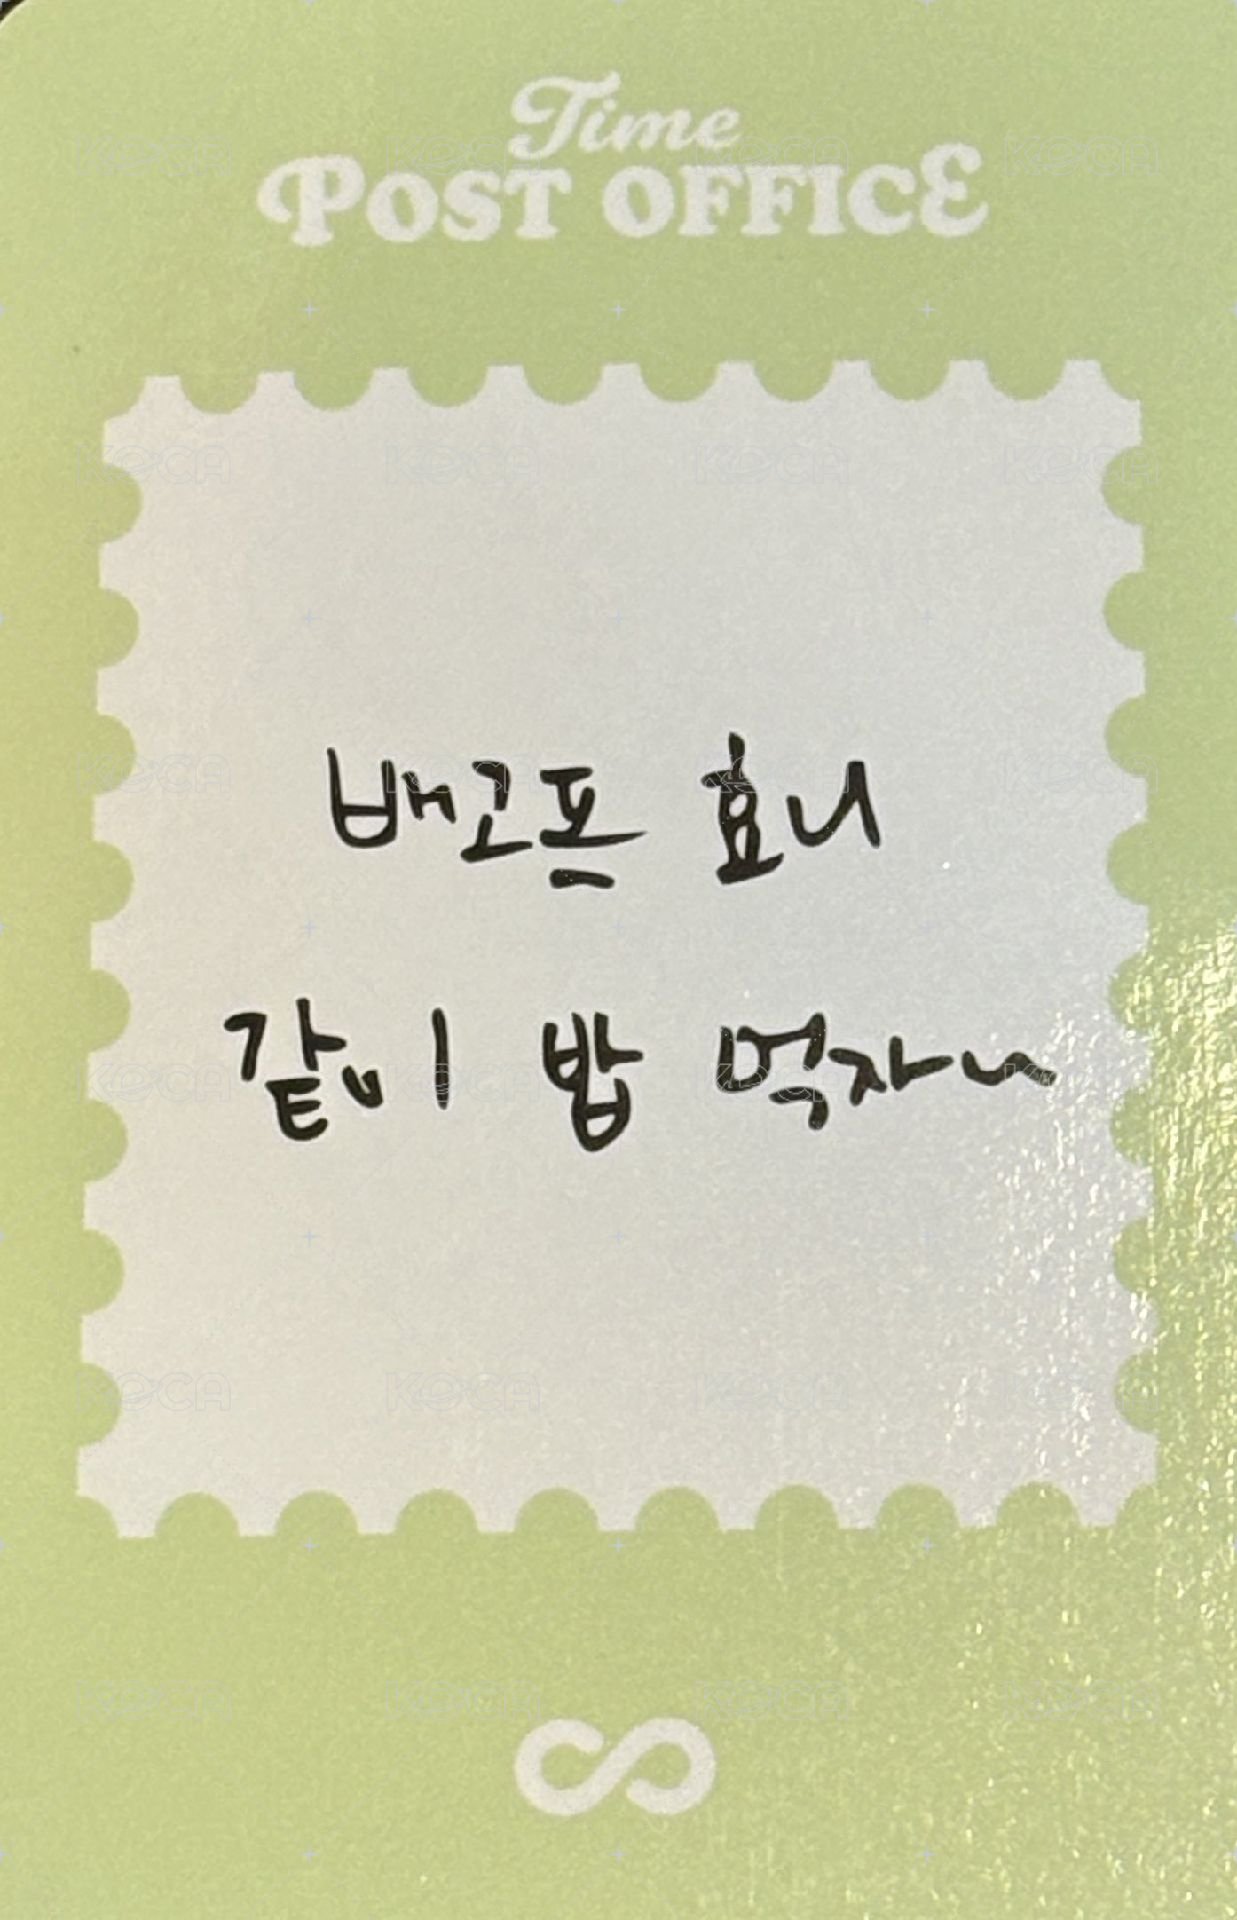 Time
POST OFFICE
배고프 효니
같이 밥 먹자~